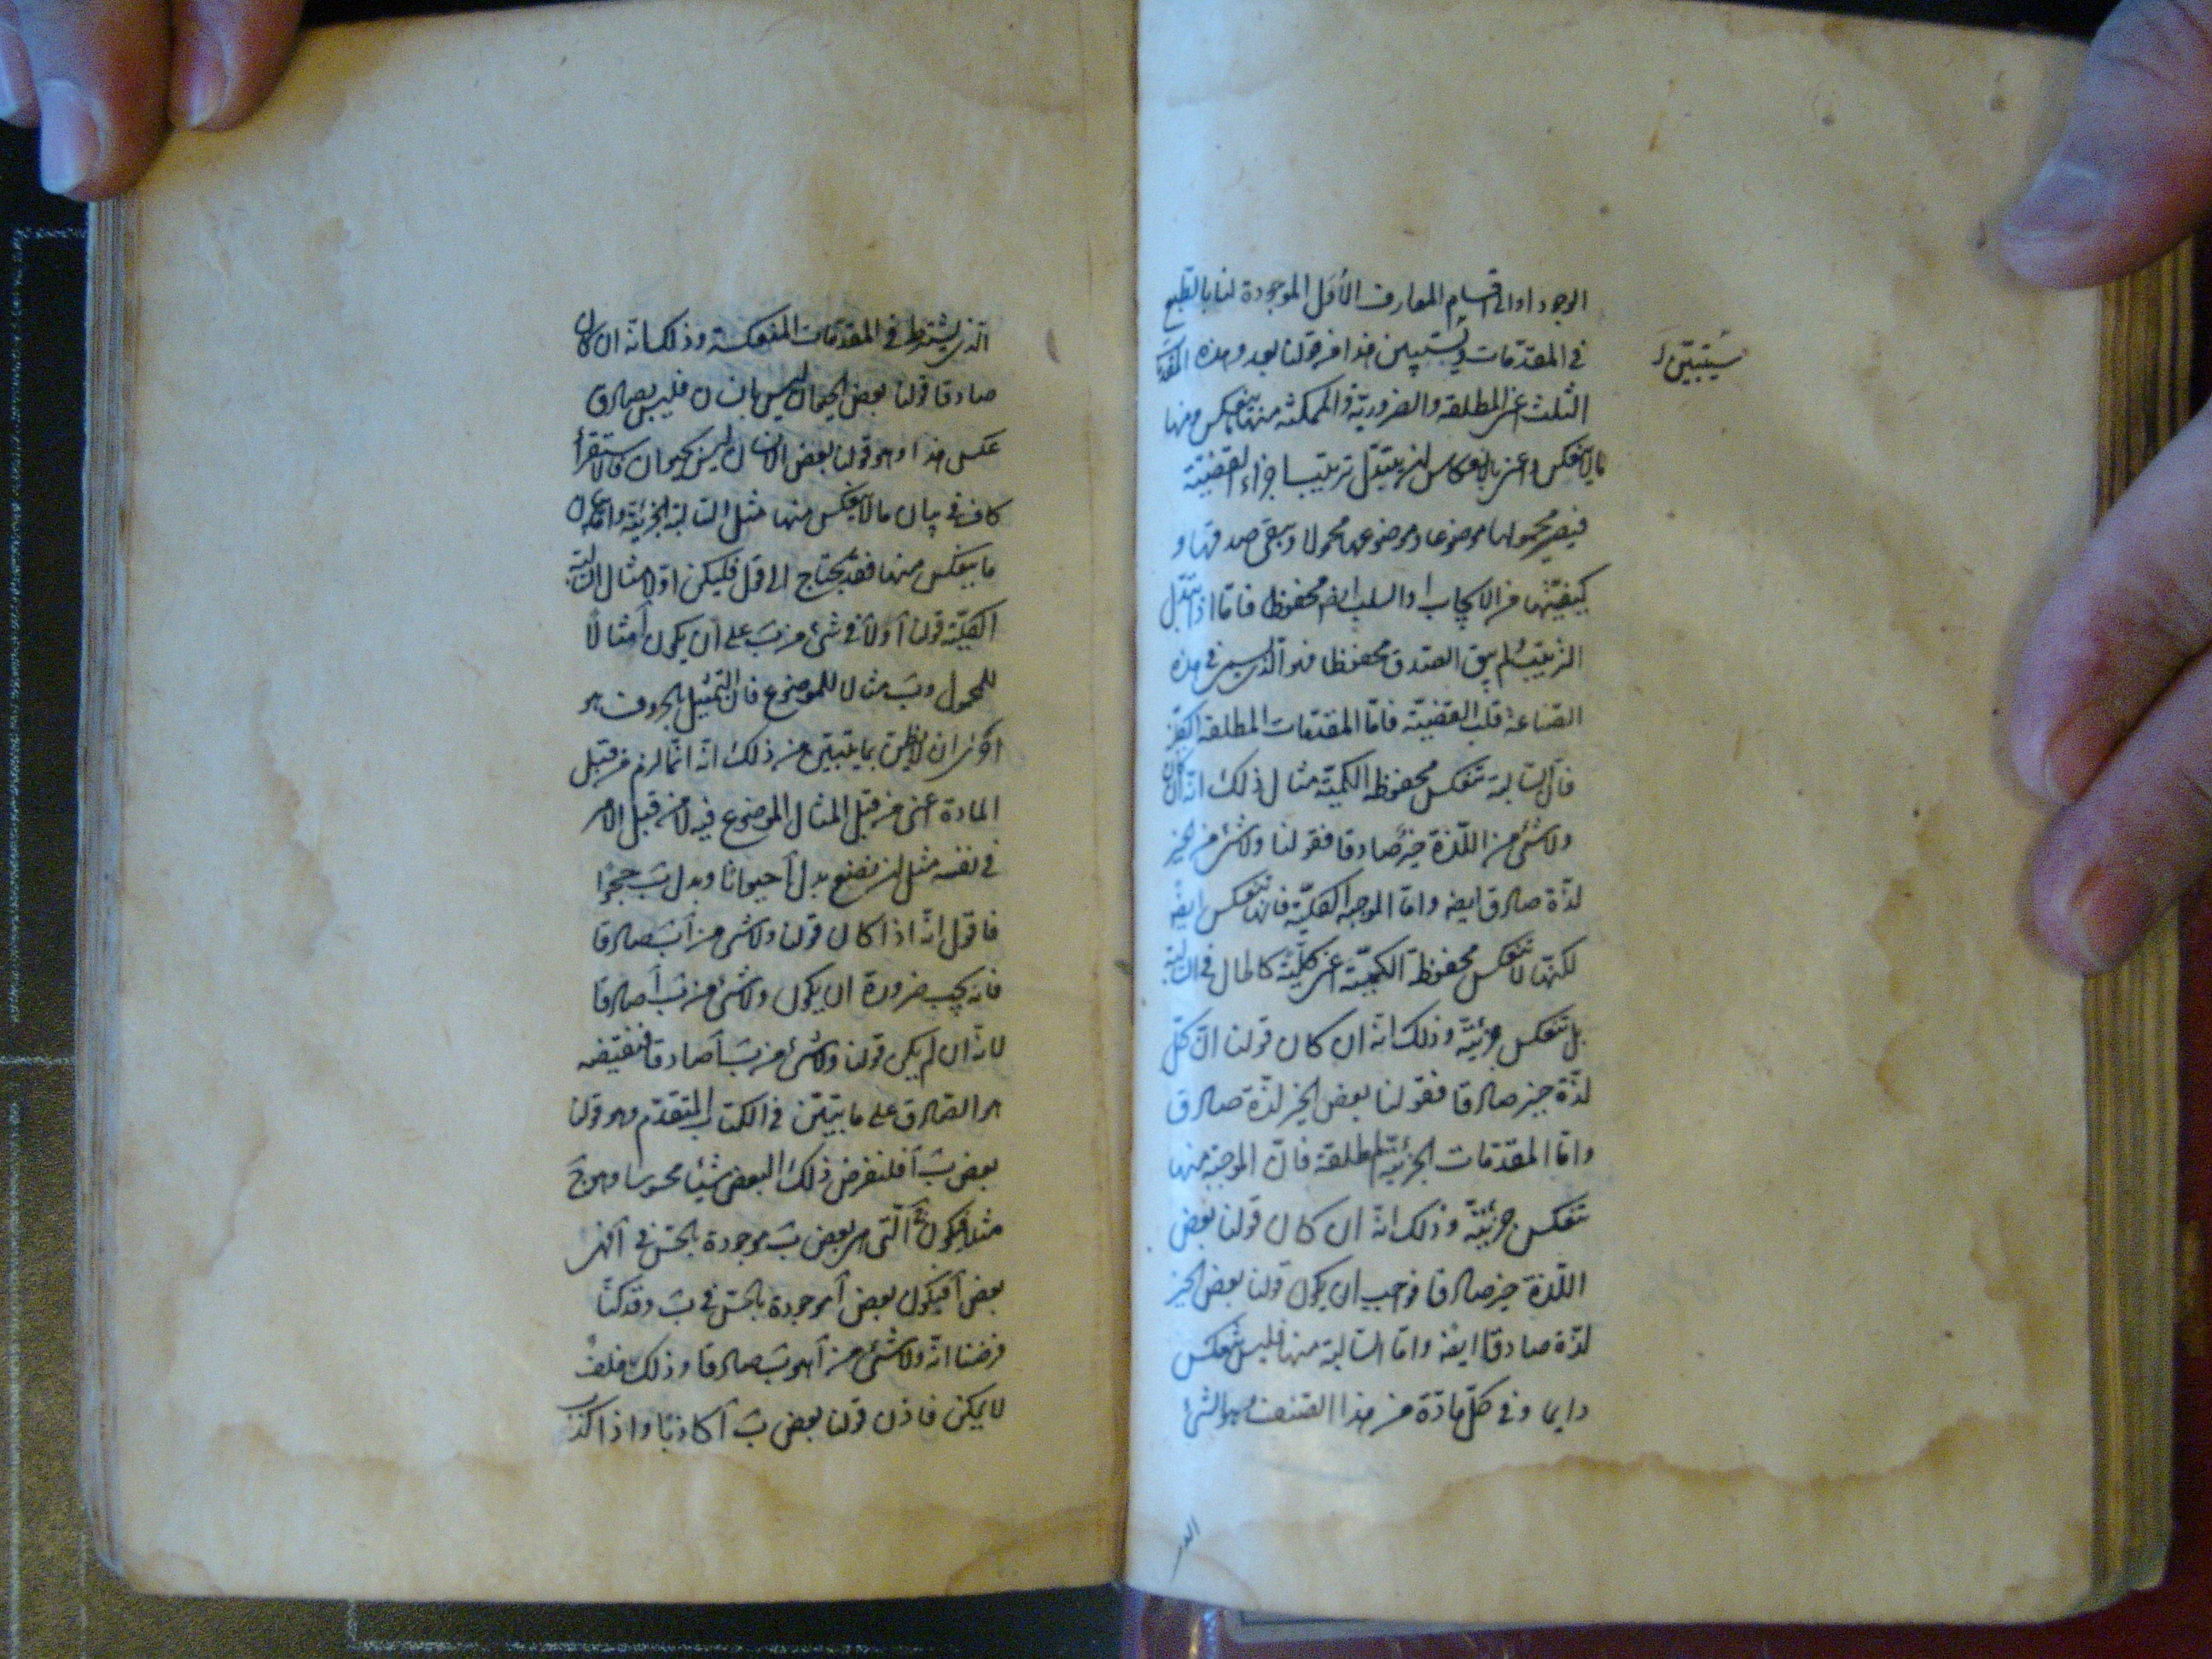 الوجود او الى اقسام المعارف الأول الموجودة لنا بالطبع
في المقدّمات وليتبين هذا من قولنا بعد وهذه المقدّمات
سيتبيّن
الثلث اعنى المطلقة والضروريّة والممكنة منها ما ينعكس ومنها
ما لا ينعكس واعنى بالانعكاس ان يتبدّل ترتيب اجزاء القضيّة
فيصير محمولها موضوعا وموضوعها محمولا ويبقى صدقها و
كيفيّتها من الايجاب او السلب ايضا محفوظا فامّا اذا تبدّل
الترتيب ولم يبق الصّدق محفوظا فهو الّذي يسمى في هذه
الصّناعة قلب القضيّة فامّا المقدّمات المطلقة الكلّيّة
فانّ السّالبة تنعكس محفوظة الكميّة مثال ذلك انّه ان كان
ولا شئ من اللّذة خير صادقا فقولنا ولا شئ من الخير
لذّة صادق ايضا وامّا الموجبة الكلّيّة فانّها تنعكس ايضا
لكنّها لا تنعكس محفوظة الكميّة اعنى كلّيّة كالحال في السّالبة
بل تنعكس جزئيّة وذلك انّه ان كان قولنا انّ كلّ
لذّة خير صادقا فقولنا بعض الخير لذّة صادق
وامّا المقدّمات الجزئيّة المطلقة فانّ الموجبة منها
تنعكس جزئيّة وذلك انّه ان كان قولنا بعض
اللّذة خير صادقا فواجب ان يكون قولنا بعض الخير
لذّة صادقا ايضا وامّا السّالبة منها فليس تنعكس
دايما وفي كلّ مادّة من هذا الصّنف وهو الشئ
الذى
الّذي يشترط في المقدّمات المنعكسة وذلك انّه ان كان
صادقا قولنا بعض الحيوان ليس بانسان فليس بصادق
عكس هذا وهو قولنا بعض الانسان ليس بحيوان فالاستقرأ
كاف في بيان ما لا ينعكس منها مثل السّالبة الجزئيّة وامّا بيان
ما ينعكس منها فقد يحتاج الى قول فليكن اوّلا مثال السّالبة
الكلّيّة قولنا آ ولا في شئ من ب على ان يكون آ مثالا
للمحمول وب مثالا للموضوع فانّ التمثيل بالحروف هو
احرى ان لا يظنّ بما يتبيّن من ذلك انّه انّما لزم من قبل
المادة اعنى من قبل المثال الموضوع فيه لا من قبل الامر
في نفسه مثل ان نضع بدل آ حيوانا وبدل ب حجرا
فاقول انّه اذا كان قولنا ولا شئ من آ ب صادقا
فانه يجب ضرورة ان يكون ولا شئ من ب آ صادقا
لانّه ان لم يكن قولنا ولا شئ من ب آ صادقا فنقيضه
هو الصّادق على ما تبيّن في الكتاب المتقدّم وهو قولنا
بعض ب آ فلنفرض ذلك البعض شيئا محسوسا وهو ج
مثلا فيكون ج الّتى هى بعض ب موجودة بالحسّ في آ فهى
بعض آ فيكون بعض آ موجودة بالحسّ في ب وقد كنّا
فرضنا انّه ولا شئ من آ هو ب صادقا وذلك خلف
لا يمكن فاذن قولنا بعض ب آ كاذبا واذا كذب